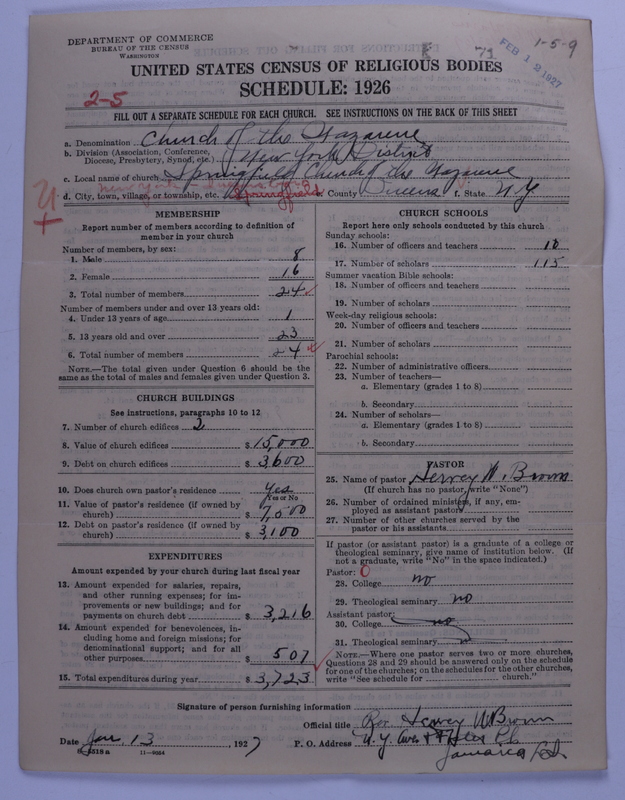 DEPARTMENT OF COMMERCE
BUREAU OF THE CENSUS
WASHINGTON
FEB 12 1927
1-5-9
UNITED STATES CENSUS OF RELIGIOUS BODIES
SCHEDULE: 1926
2-5
FILL OUT A SEPARATE SCHEDULE FOR EACH CHURCH. SEE INSTRUCTIONS ON THE BACK OF THIS SHEET
a. Denomination Church of the Nazarene
b. Division (Association, Conference, Diocese, Presbytery, Synod, etc.) New York District
c. Local name of church Springfield Church of the Nazarene
d. City, town, village, or township, etc. New York Springfield e. County Queens f. State N.Y
MEMBERSHIP
Report number of members according to definition of
member in your church
Number of members, by sex:
1. Male 8
2. Female 16
3. Total number of members 24
Number of members under and over 13 years old:
4. Under 13 years of age 1
5. 13 years old and over 23
6. Total number of members 24
NOTE.—The total given under Question 6 should be the
same as the total of males and females given under Question 3.
CHURCH BUILDINGS
See instructions, paragraphs 10 to 12
7. Number of church edifices 2
8. Value of church edifices $ 15,000
9. Debt on church edifices $ 3,600
10. Does church own pastor's residence Yes
Yes or No
11. Value of pastor's residence (if owned by
church) $ 7,500
12. Debt on pastor's residence (if owned by
church) $ 3,100
EXPENDITURES
Amount expended by your church during last fiscal year
13. Amount expended for salaries, repairs,
and other running expenses; for im-
provements or new buildings; and for
payments on church debt $ 3,216
14. Amount expended for benevolences, in-
cluding home and foreign missions; for
denominational support; and for all
other purposes $ 507
15. Total expenditures during year $ 3,723
CHURCH SCHOOLS
Report here only schools conducted by this church
Sunday schools:
16. Number of officers and teachers 10
17. Number of scholars 115
Summer vacation Bible schools:
18. Number of officers and teachers
19. Number of scholars
Week-day religious schools:
20. Number of officers and teachers
21. Number of scholars
Parochial schools:
22. Number of administrative officers
23. Number of teachers—
a. Elementary (grades 1 to 8)
b. Secondary
24. Number of scholars—
a. Elementary (grades 1 to 8)
b. Secondary
PASTOR
25. Name of pastor Hervey W. Brown
(If church has no pastor, write "None")
26. Number of ordained ministers, if any, em-
ployed as assistant pastors
27. Number of other churches served by the
pastor or his assistants
If pastor (or assistant pastor) is a graduate of a college or
theological seminary, give name of institution below. (If
not a graduate, write "No" in the space indicated.)
Pastor: 0
28. College no
29. Theological seminary no
Assistant pastor:
30. College no
31. Theological seminary
NOTE.—Where one pastor serves two or more churches,
Questions 28 and 29 should be answered only on the schedule
for one of the churches; on the schedules for the other churches,
write "See schedule for church."
Signature of person furnishing information
Official title Rev. Hervey W Brown
Date Jan. 13 1927 P. O. Address N.Y. Ave
Jamaica
8-4818 a 11-9064